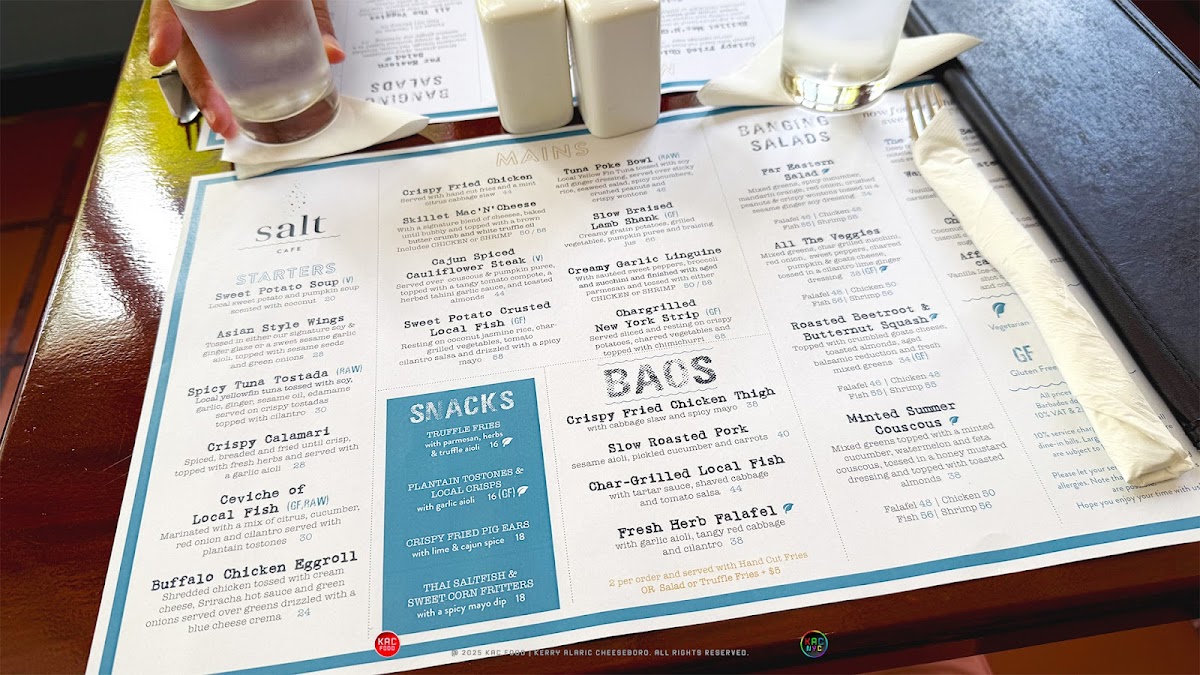 salt
CAFE
STARTERS
Sweet Potato Soup (V)
Local sweet potato and pumpkin soup
scented with coconut 20
Asian Style Wings
Tossed in either our signature soy &
ginger glass or a sweet sesame garlic
aioli, topped with sesame seeds
and green onions 28
Spicy Tuna Tostada (RAW)
Local yellowfin tuna tossed with soy,
garlic, ginger, sesame oil, edamame
served on crispy tostadas
topped with cilantro 30
Crispy Calamari
Spiced, breaded and fried until crisp,
topped with fresh herbs and served with
a garlic aioli 28
Ceviche of
Local Fish (GF,RAW)
Marinated with a mix of citrus, cucumber,
red onion and cilantro served with
plantain tostones 30
Buffalo Chicken Eggroll
Shredded chicken tossed with cream
cheese, Sriracha hot sauce and green
onions served over greens drizzled with a
blue cheese crema 24
MAINS
Crispy Fried Chicken
Served with hand cut fries and a mint
citrus cabbage slaw 44
Skillet Mac'N'Cheese
With a signature blend of cheeses, baked
until bubbly and topped with a brown
butter crumb and white truffle oil
Includes CHICKEN or SHRIMP 50 / 58
Cajun Spiced
Cauliflower Steak (V)
Served over couscous & pumpkin puree,
topped with a tangy tomato compote, a
herbed tahini garlic sauce, and toasted
almonds 44
Sweet Potato Crusted
Local Fish (GF)
Resting on coconut jasmine rice, char-
grilled vegetables, tomato
cilantro salsa and drizzled with a spicy
mayo 68
Tuna Poke Bowl (RAW)
Local Yellow Fin Tuna tossed with soy
and ginger dressing, served over sticky
rice, seaweed salad, spicy cucumbers,
crushed peanuts and
crispy wontons 48
Slow Braised
Lamb Shank (GF)
Creamy gratin potatoes, grilled
vegetables, pumpkin puree and braising
jus 66
Creamy Garlic Linguine
With sauteed sweet peppers, broccoli
and zucchini and finished with aged
parmesan and tossed with either
CHICKEN or SHRIMP 50 / 58
Chargrilled
New York Strip (GF)
Served sliced and resting on crispy
potatoes, charred vegetables and
topped with chimichurri 68
SNACKS
TRUFFLE FRIES
with parmesan, herbs
& truffle aioli 16
PLANTAIN TOSTONES &
LOCAL CRISPS
with garlic aioli 16 (GF)
CRISPY FRIED PIG EARS
with lime & cajun spice 18
THAI SALTFISH &
SWEET CORN FRITTERS
with a spicy mayo dip 18
BAOS
Crispy Fried Chicken Thigh
with cabbage slaw and spicy mayo 38
Slow Roasted Pork
sesame aioli, pickled cucumber and carrots 40
Char-Grilled Local Fish
with tartar sauce, shaved cabbage
and tomato salsa 44
Fresh Herb Falafel
with garlic aioli, tangy red cabbage
and cilantro 38
2 per order and served with Hand Cut Fries
OR Salad or Truffle Fries + $5
BANGING
SALADS
Far Eastern
Salad
Mixed greens, spicy cucumber,
mandarin orange, red onion, crushed
peanuts & crispy wontons tossed in a
sesame ginger soy dressing 34
Falafel 46 | Chicken 48
Fish 55 | Shrimp 56
All The Veggies
Mixed greens, char grilled zucchini,
red onion, sweet peppers,
pumpkin & goats cheese,
tossed in a cilantro lime ginger
dressing 38 (GF)
Falafel 46 | Chicken 50
Fish 56 | Shrimp 56
Roasted Beetroot &
Butternut Squash
Topped with crumbled goats cheese,
toasted almonds, aged
balsamic reduction and fresh
mixed greens 34 (GF)
Falafel 46 | Chicken 48
Fish 55 | Shrimp 55
Minted Summer
Couscous
Mixed greens topped with a minted
cucumber, watermelon and feta
couscous, tossed in a honey mustard
dressing and topped with toasted
almonds 38
Falafel 48 | Chicken 50
Fish 56 | Shrimp 56
Vegetarian
GF
Gluten Free
All prices
Barbados
10% VAT & 2
10% service char
dine-in bills. Larg
are subject to
Please let your se
allergies. Note tha
are po
Hope you enjoy your time with us
KAC
FOOD
© 2025 KAC FOOD | KERRY ALARIC CHEESEBORO. ALL RIGHTS RESERVED.
KAC
NYC